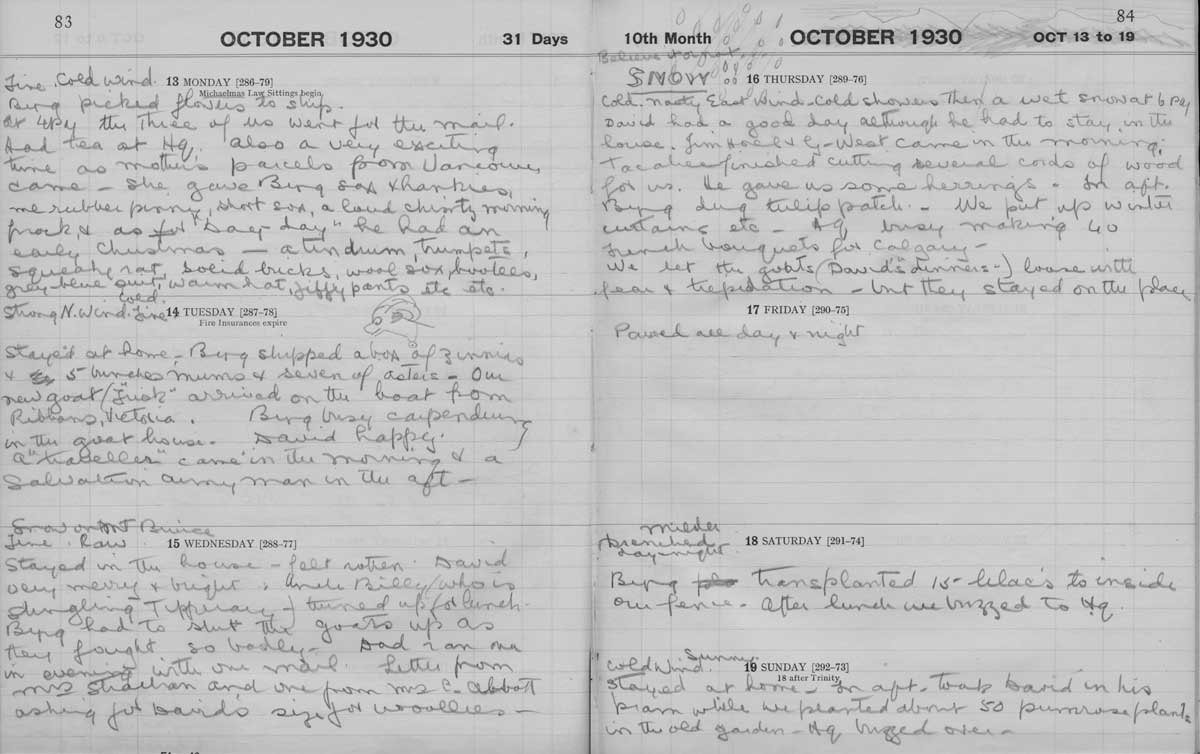 83
OCTOBER 1930
31 Days
Fine. Cold wind. 13 MONDAY [286-79]
Michaelmas Law Sittings begin
Byng picked flowers to ship.
At 4 py the three of us went for the mail.
Had tea at Hq. Also a very exciting
time as mothers parcels from Vancouver
came - She gave Byng sox & hankies,
me rubber pinny, short sox, a loud chintzy morning
frock, & as for "Davy day" he had an
early Christmas - a tin drum, trumpets,
squeaky rat, solid bricks, wool sox, bootees,
grey-blue suit, warm hat, jiffy pants etc etc.
Cold
Strong N. Wind. Fine 14 TUESDAY [287-78]
Fire Insurances expire
Stayed at home - Byng shipped a box of zinnias
& 5 bunches mums & seven of asters - Our
new goat "Frisk" arrived on the boat from
Ribbons, Victoria. Byng busy carpendering
in the goat house. David happy.
A "traveller" came in the morning & a
Salvation Army man in the aft -
Snow on Mt Bruce
Fine. Raw. 15 WEDNESDAY [288-77]
Stayed in the house - felt rotten. David
very merry & bright. Uncle Billy (who is
shingling Tipperary) turned up for lunch.
Byng had to shut the goats up as
they fought so badly - Dad ran over
in evening with our mail. Letter from
Mrs Strachan and one from Mrs C. Abbott
asking for Davids size for woollies -
84
10th Month
OCTOBER 1930
OCT 13 to 19
Believe it or not
SNOW 16 THURSDAY [289-76]
Cold. Nasty East Wind - Cold showers Then a wet snow at 6 py
David had a good day although he had to stay in the
house. Jim & G. West came in the morning,
finished cutting several cords of wood
for us. He gave us some herrings - In aft.
Byng dug tulip patch - We put up winter
curtains etc - Hq busy making 40
french bouquets for Calgary -
We let the goats (David's "dinners") loose with
fear & trepidation - but they stayed on the place
17 FRIDAY [290-75]
Poured all day & night
Milder
Drenched 18 SATURDAY [291-74]
day & night
Byng transplanted 15 lilac's to inside
our fence - After lunch we buzzed to Hq.
Cold wind. Sunny. 19 SUNDAY [292-73]
18 after Trinity
Stayed at home - In aft. took David in his
pram while we planted about 50 primrose plants
in the old garden - Hq buzzed over -